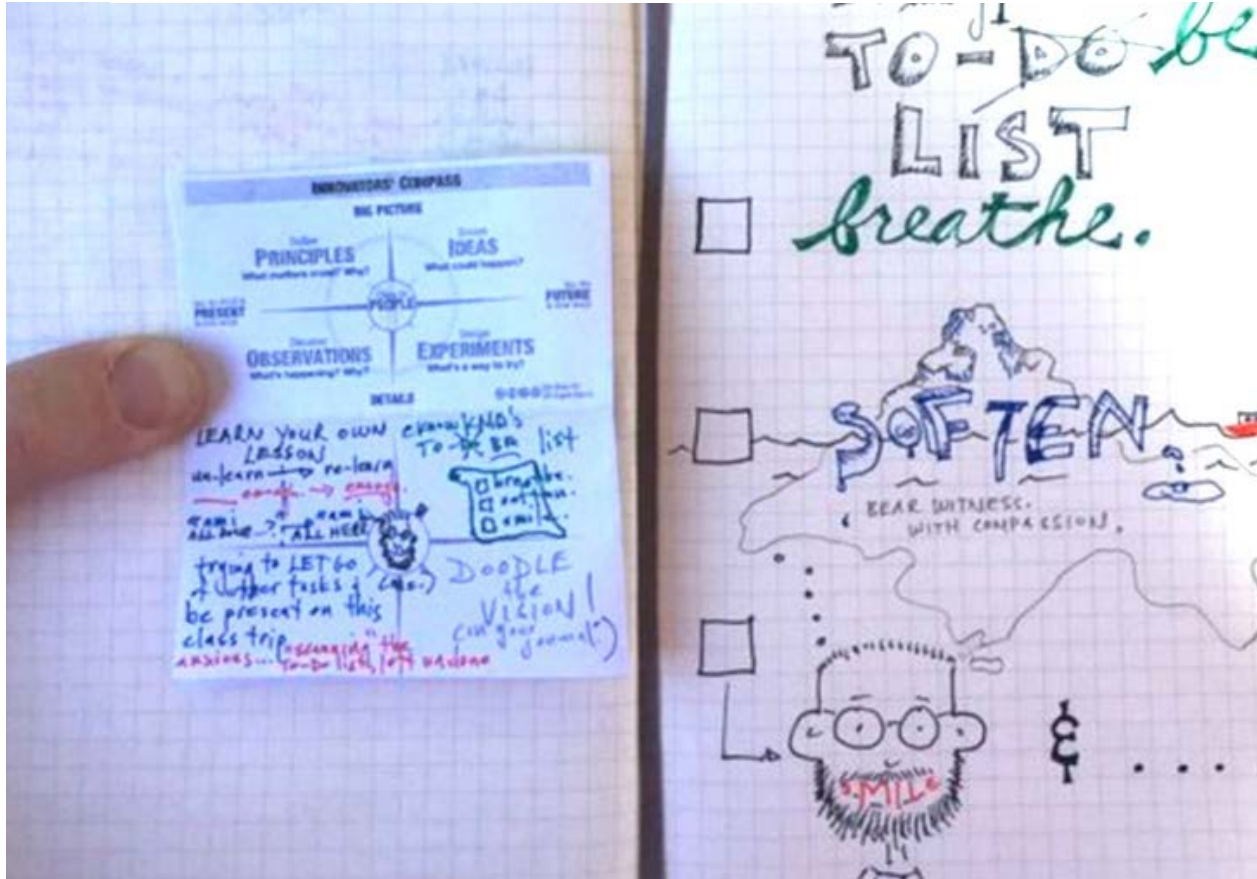 INNOVATORS' COMPASS
BIG PICTURE
PRINCIPLES
What matters most? Why?
IDEAS
What could happen?
PRESENT
PEOPLE
FUTURE
OBSERVATIONS
What's happening? Why?
EXPERIMENTS
What's a way to try?
DETAILS
LEARN YOUR OWN
LESSON
un-learn → re-learn
ALL HERE
TO-
BE list
trying to LET GO
of other tasks &
be present on this
class trip
anxious...
the
To-Do list, left undone
DOODLE
the
VISION!
(in your journal!)
TO-DO be
LIST
breathe.
SOFTEN.
BEAR WITNESS.
WITH COMPASSION.
SMILE
& ...